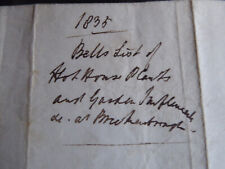 1835
Bells List of
Hot House Plants
and Garden Implements
&c. at Breckenbrough